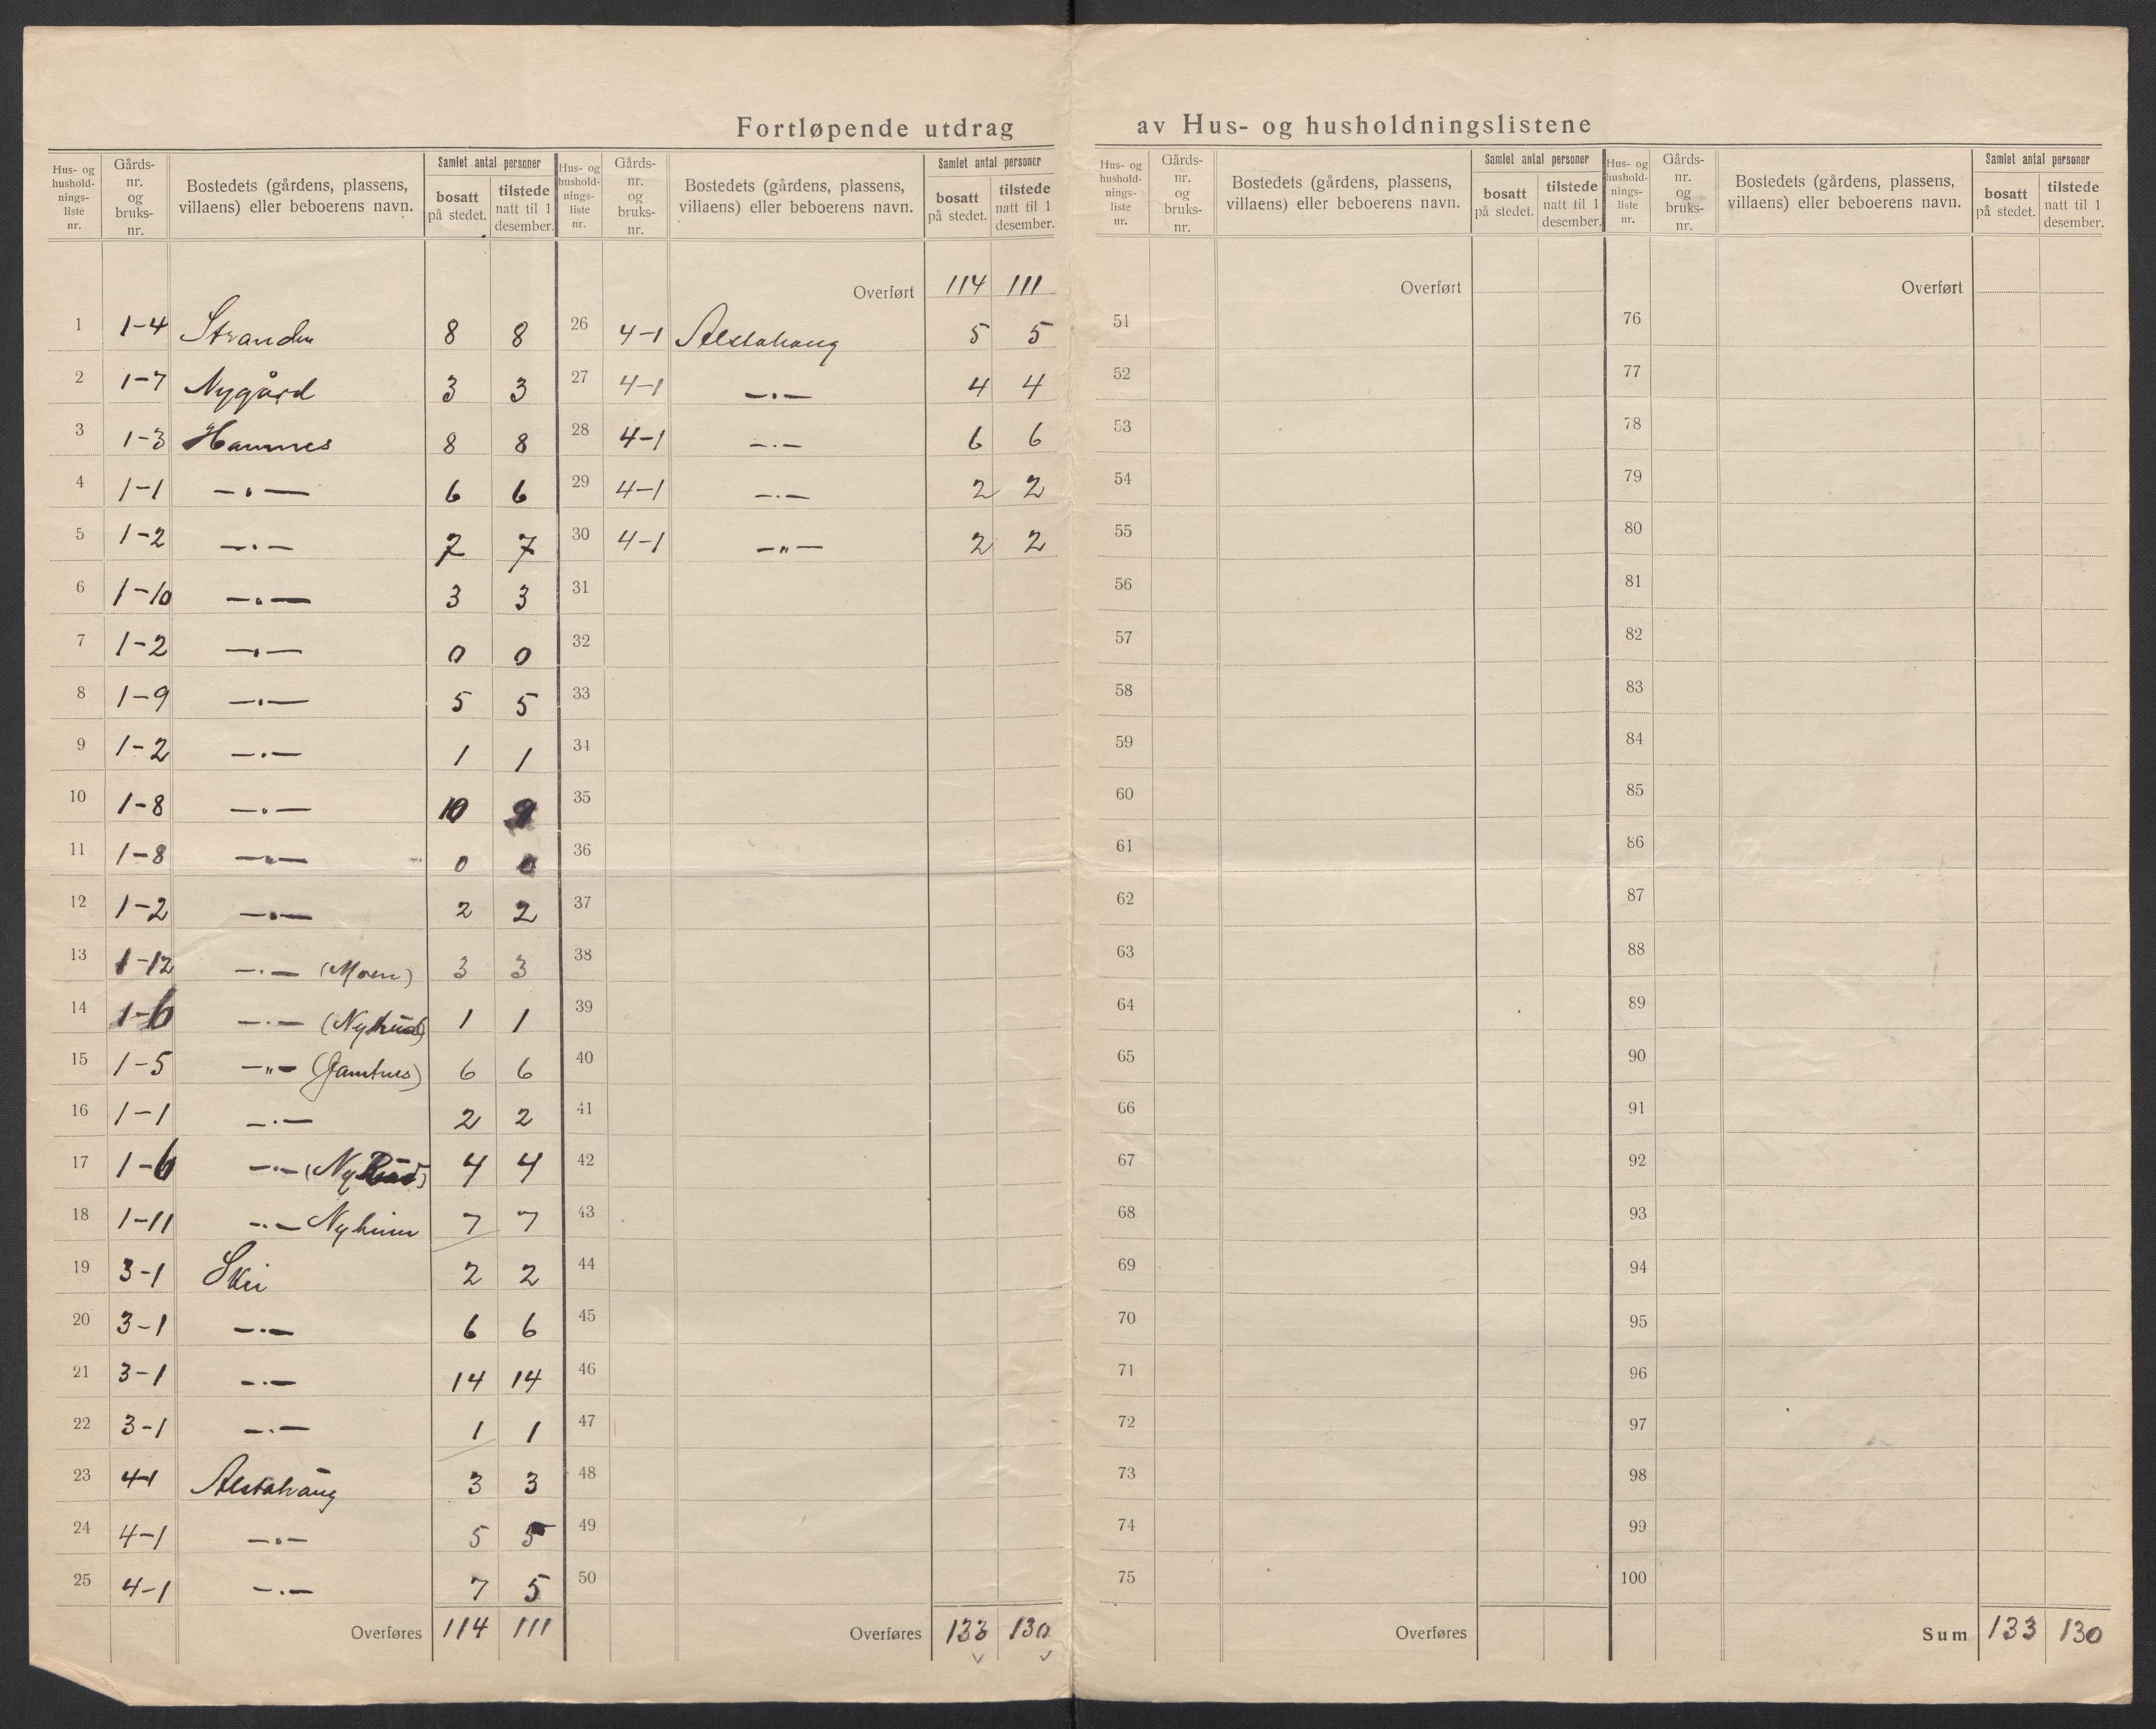 Fortløpende utdrag av Hus- og husholdningslistene
Hus- og hushold- nings- liste nr. | Gårds- nr. og bruks- nr. | Bostedets (gårdens, plassens, villaens) eller beboerens navn. | Samlet antal personer | bosatt på stedet. | tilstede natt til 1 desember.
1 1-4 Stranden 8 8
2 1-7 Nygård 3 3
3 1-3 Hamnes 8 8
4 1-1 —"— 6 6
5 1-2 —"— 7 7
6 1-10 —"— 3 3
7 1-2 —"— 0 0
8 1-9 —"— 5 5
9 1-2 —"— 1 1
10 1-8 —"— 10 9
11 1-8 —"— 0 0
12 1-2 —"— 2 2
13 1-12 —"— (Moen) 3 3
14 1-6 —"— 1 1
15 1-5 —"— 6 6
16 1-1 —"— 2 2
17 1-6 —"— 4 4
18 1-11 —"— Nyheim 7 7
19 3-1 Skei 2 2
20 3-1 —"— 6 6
21 3-1 —"— 14 14
22 3-1 —"— 1 1
23 4-1 Alstahaug 3 3
24 4-1 —"— 5 5
25 4-1 —"— 7 5
Overføres 114 111
Hus- og hushold- nings- liste nr. | Gårds- nr. og bruks- nr. | Bostedets (gårdens, plassens, villaens) eller beboerens navn. | Samlet antal personer | bosatt på stedet. | tilstede natt til 1 desember.
Overført 114 111
26 4-1 Alstahaug 5 5
27 4-1 —"— 4 4
28 4-1 —"— 6 6
29 4-1 —"— 2 2
30 4-1 —"— 2 2
31
32
33
34
35
36
37
38
39
40
41
42
43
44
45
46
47
48
49
50
Overføres 133 130
Hus- og hushold- nings- liste nr. | Gårds- nr. og bruks- nr. | Bostedets (gårdens, plassens, villaens) eller beboerens navn. | Samlet antal personer | bosatt på stedet. | tilstede natt til 1 desember.
Overført
51
52
53
54
55
56
57
58
59
60
61
62
63
64
65
66
67
68
69
70
71
72
73
74
75
Overføres
Hus- og hushold- nings- liste nr. | Gårds- nr. og bruks- nr. | Bostedets (gårdens, plassens, villaens) eller beboerens navn. | Samlet antal personer | bosatt på stedet. | tilstede natt til 1 desember.
Overført
76
77
78
79
80
81
82
83
84
85
86
87
88
89
90
91
92
93
94
95
96
97
98
99
100
Sum 133 130